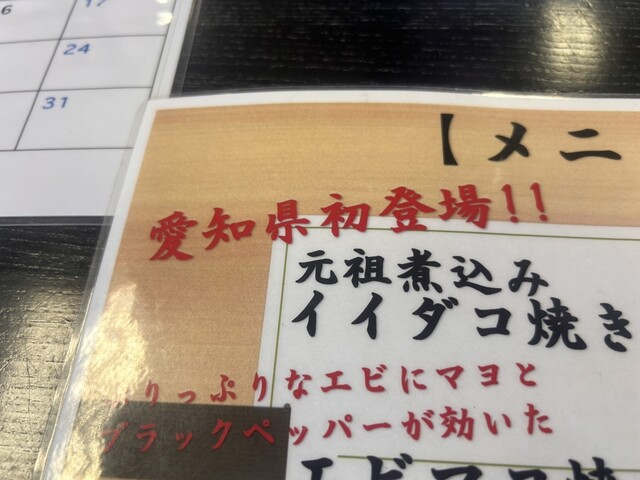 6
17
24
31
【メニ
愛知県初登場!!
元祖煮込み
イイダコ焼き
ぷりっぷりなエビにマヨと
ブラックペッパーが効いた
エビマヨ焼